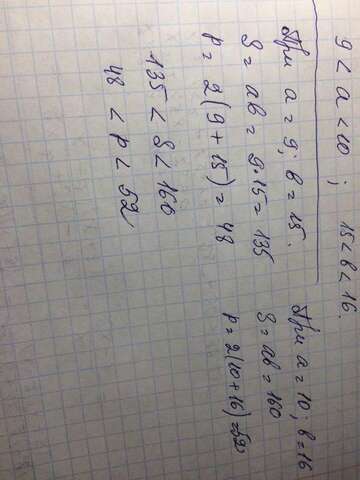 9 < a < 10 ; 15 < b < 16.
При a = 9; b = 15.
S = ab = 9·15 = 135
P = 2(9 + 15) = 48
При a = 10; b = 16
S = ab = 160
P = 2(10 + 16) = 52
135 < S < 160
48 < P < 52